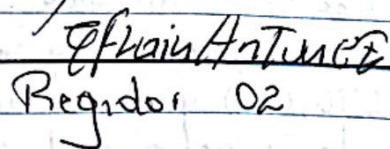 Efrain Antunez
Regidor 02